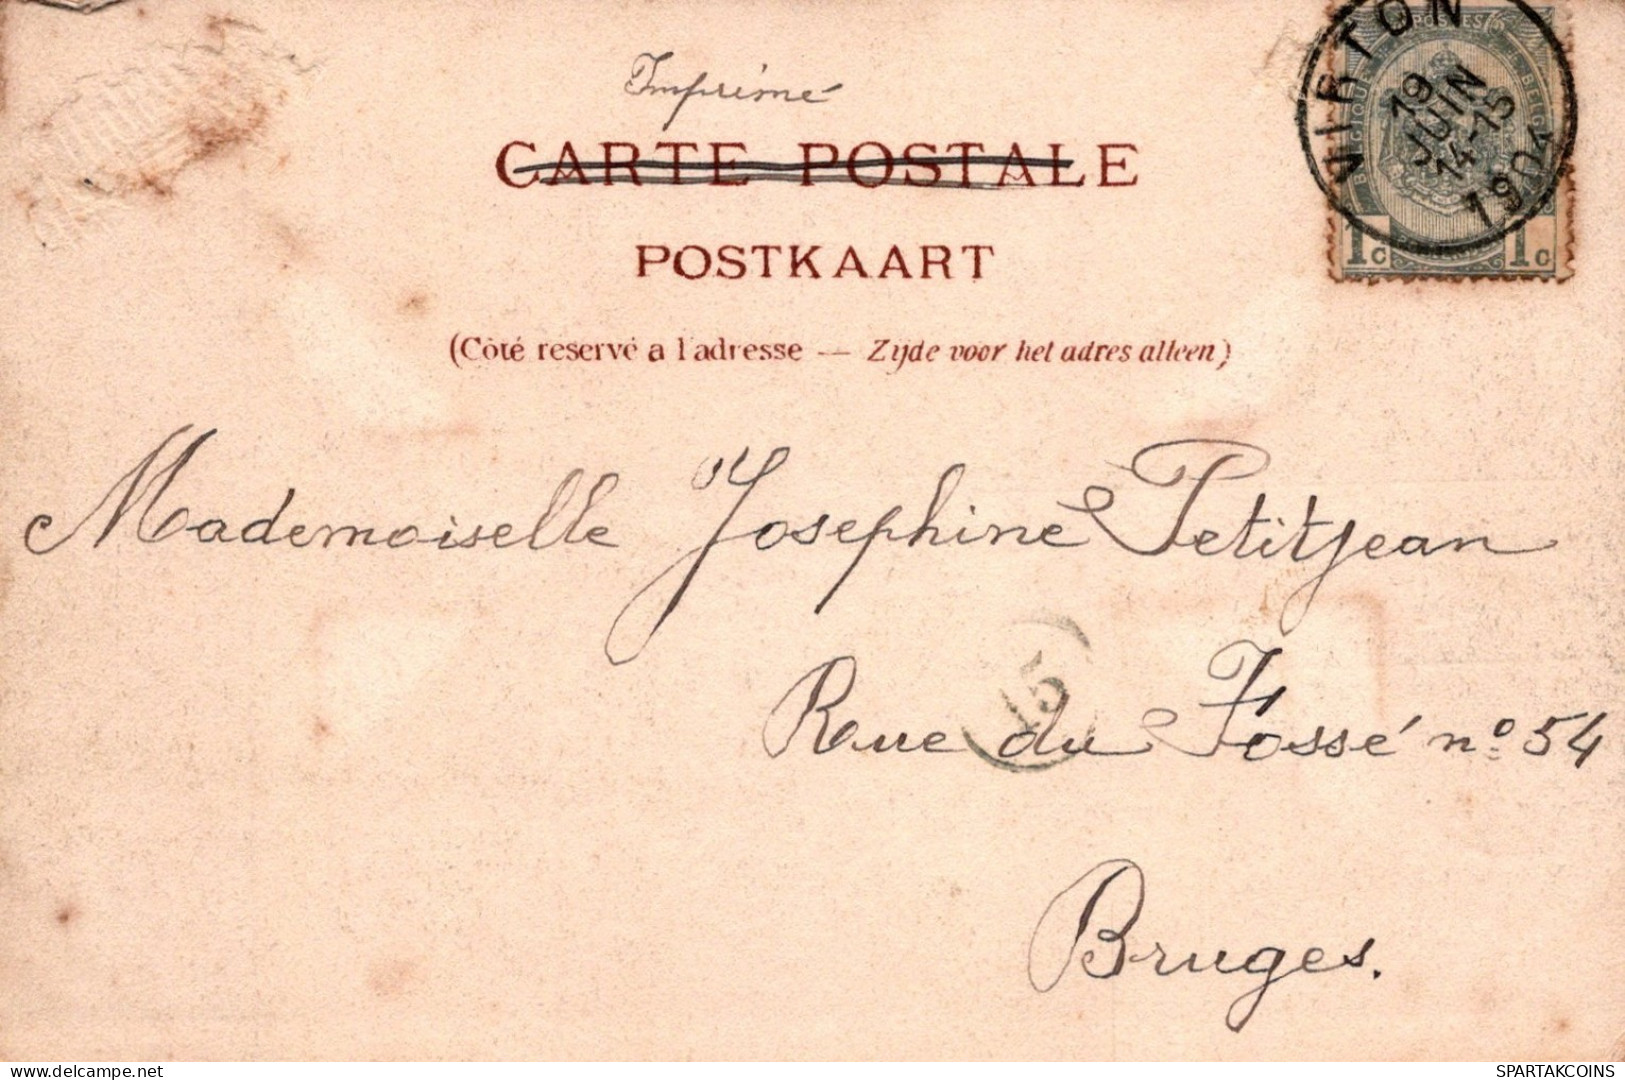 Imprimé
CARTE POSTALE
POSTKAART
(Côté réservé a l'adresse — Zijde voor het adres alleen)
POSTES
BELGIQUE
BELGIË
1 C
1 C
VIRTON
19
JUIN
14-15
1904
Mademoiselle Josephine Petitjean
15
Rue du Fossé n° 54
Bruges.
www.delcampe.net
SPARTAKCOINS